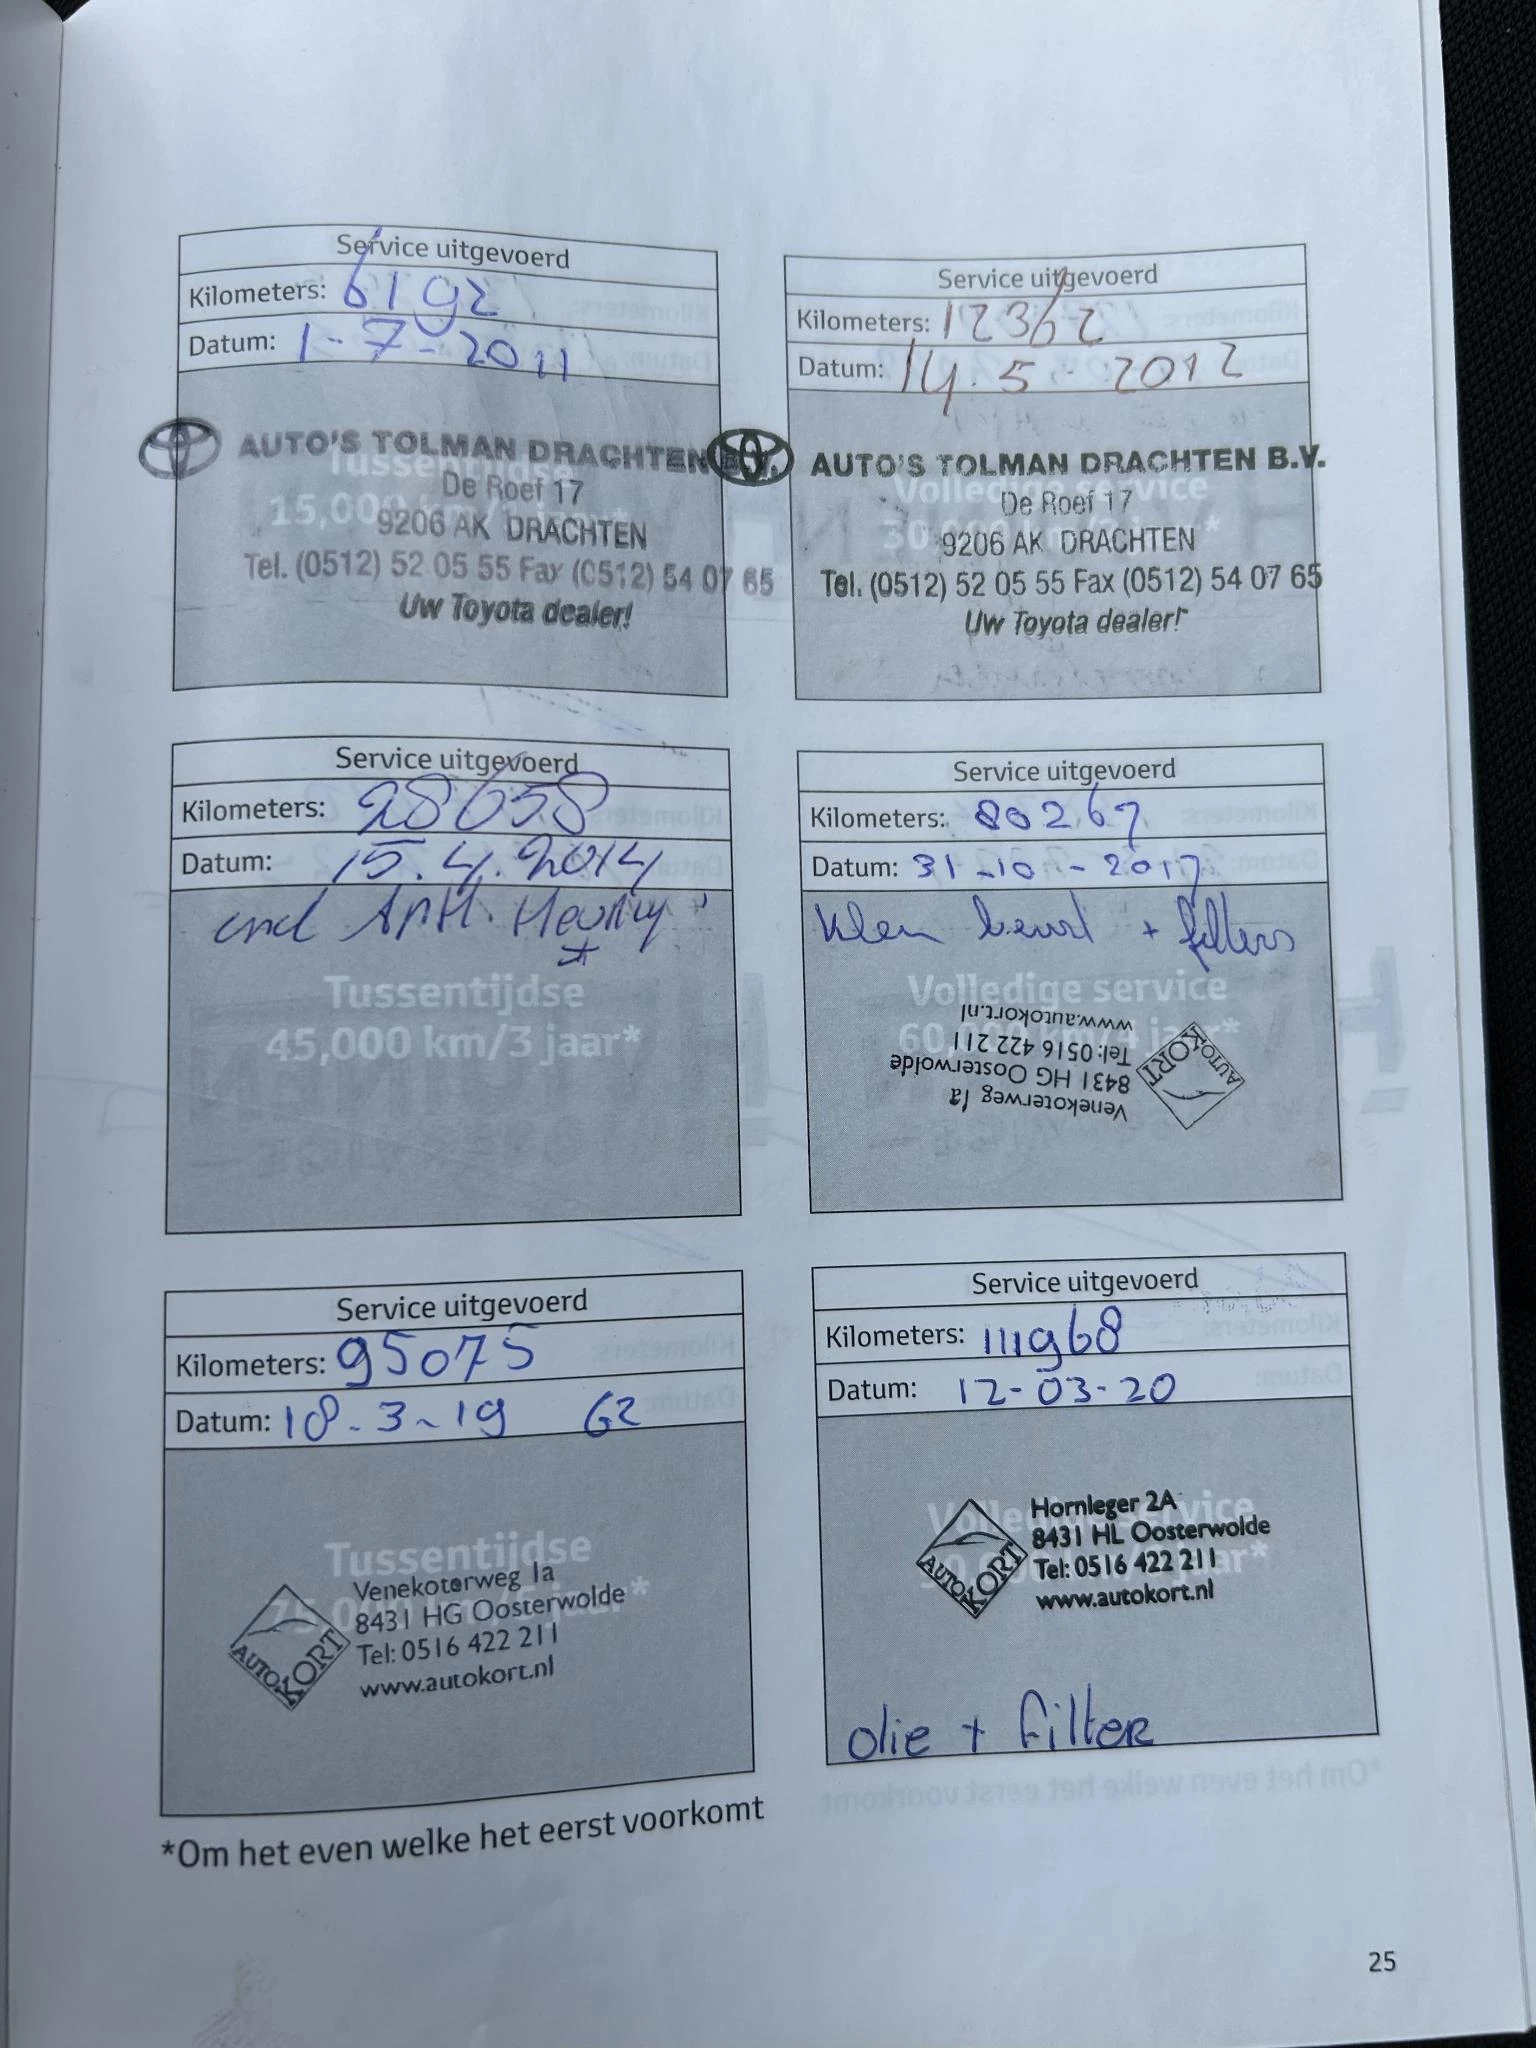 Service uitgevoerd
Kilometers: 6192
Datum: 1-7-2011
AUTO'S TOLMAN DRACHTEN B.V.
Tussentijdse
De Roef 17
15,000 km/1 jaar*
9206 AK DRACHTEN
Tel. (0512) 52 05 55 Fax (0512) 54 07 65
Uw Toyota dealer!
Service uitgevoerd
Kilometers: 12362
Datum: 14-5-2012
AUTO'S TOLMAN DRACHTEN B.V.
Volledige service
De Roef 17
30,000 km/2 jaar*
9206 AK DRACHTEN
Tel. (0512) 52 05 55 Fax (0512) 54 07 65
Uw Toyota dealer!
Service uitgevoerd
Kilometers: 28658
Datum: 15.4.2014
Tussentijdse
45,000 km/3 jaar*
Service uitgevoerd
Kilometers: 80267
Datum: 31-10-2017
Klein beurt + filters
Volledige service
60,000 km/4 jaar*
AUTO KORT
Venekoterweg 1a
8431 HG Oosterwolde
Tel: 0516 422 211
www.autokort.nl
Service uitgevoerd
Kilometers: 95075
Datum: 18-3-19 62
Tussentijdse
75,000 km/5 jaar*
AUTO KORT
Venekoterweg 1a
8431 HG Oosterwolde
Tel: 0516 422 211
www.autokort.nl
Service uitgevoerd
Kilometers: 111968
Datum: 12-03-20
Volledige service
90,000 km/6 jaar*
AUTO KORT
Hornleger 2A
8431 HL Oosterwolde
Tel: 0516 422 211
www.autokort.nl
olie + filter
*Om het even welke het eerst voorkomt
25